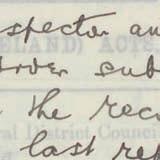 spector an
ELAND) ACTS,
order sub
the rec
ral District Council
last re